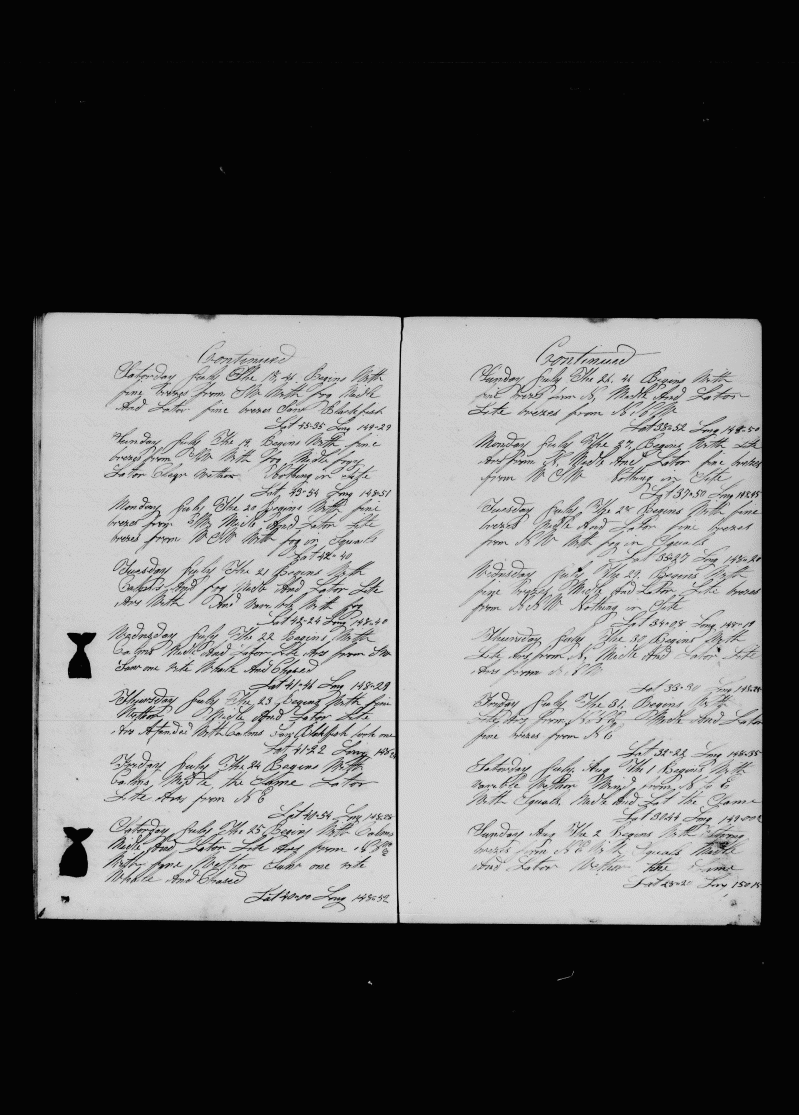 Continued
Saturday July The 18, 41 Begins With
fine brezes from SW With fog Midle
And Lator fine brezes Saw Blackfish
Lat 43-35 Long 149-29
Sunday July The 19 Begins With fine
brezes from SW With fog Midle foggy
Lator Clear Wether Nothing in Site
Lat 43-54 Long 148-51
Monday July The 20 Begins With fine
brezes from SW Midle And Lator Lite
brezes from WSW With fog in Squals
Lat 42-40
Tuesday July The 21 Begins With
Calms And fog Midle And Lator Lite
Airs With And With fog
Lat 42-24 Long 148-40
Wednesday July The 22 Begins With
Calms Midle And Lator Lite Airs from SW
Saw one rite Whale And Chased
Lat 41-46 Long 148-29
Thursday July The 23 Begins With fine
Wether Midle And Lator Lite
Airs Attended With Calms Saw Blackfish took one
Lat 41-22 Long
Friday July The 24 Begins With
Calms, Midle the Same Lator
Lite Airs from N E
Lat 40-54 Long 148-28
Saturday July The 25 Begins With Calms
Midle And Lator Lite Airs from
With fine Wether Saw one rite
Whale And Chased
Lat 40-00 Long 148-52
Continued
Sunday July The 26, 41 Begins With
fine brezes from N, Midle And Lator
Lite brezes from N N W
Lat 38-52 Long 148-50
Monday July The 27 Begins With Lite
Airs from N, Midle And Lator fine brezes
from W S W Nothing in Site
Lat 37-50 Long 148-45
Tuesday July The 28 Begins With fine
brezes Midle And Lator fine brezes
from N W With fog in Squals
Lat 35-27 Long 148-20
Wednesday July The 29 Begins With
fine brezes Midle And Lator Lite brezes
from N N W Nothing in Site
Lat 34-08 Long 148-19
Thursday July The 30 Begins With
Lite Airs from N, Midle And Lator Lite
Airs from
Lat 33-30 Long
Friday July The 31 Begins With
Lite Airs from Midle And Lator
fine brezes from N E
Lat 32-22 Long 148-35
Saturday July Aug The 1 Begins With
varable Wether Wind from N to E
With Squals Midle And Lat the Same
Lat 30-44 Long 149-00
Sunday Aug The 2 Begins With strong
brezes from N E With Squals Midle
And Lator Wether the Same
Lat 28-20 Long 150-15